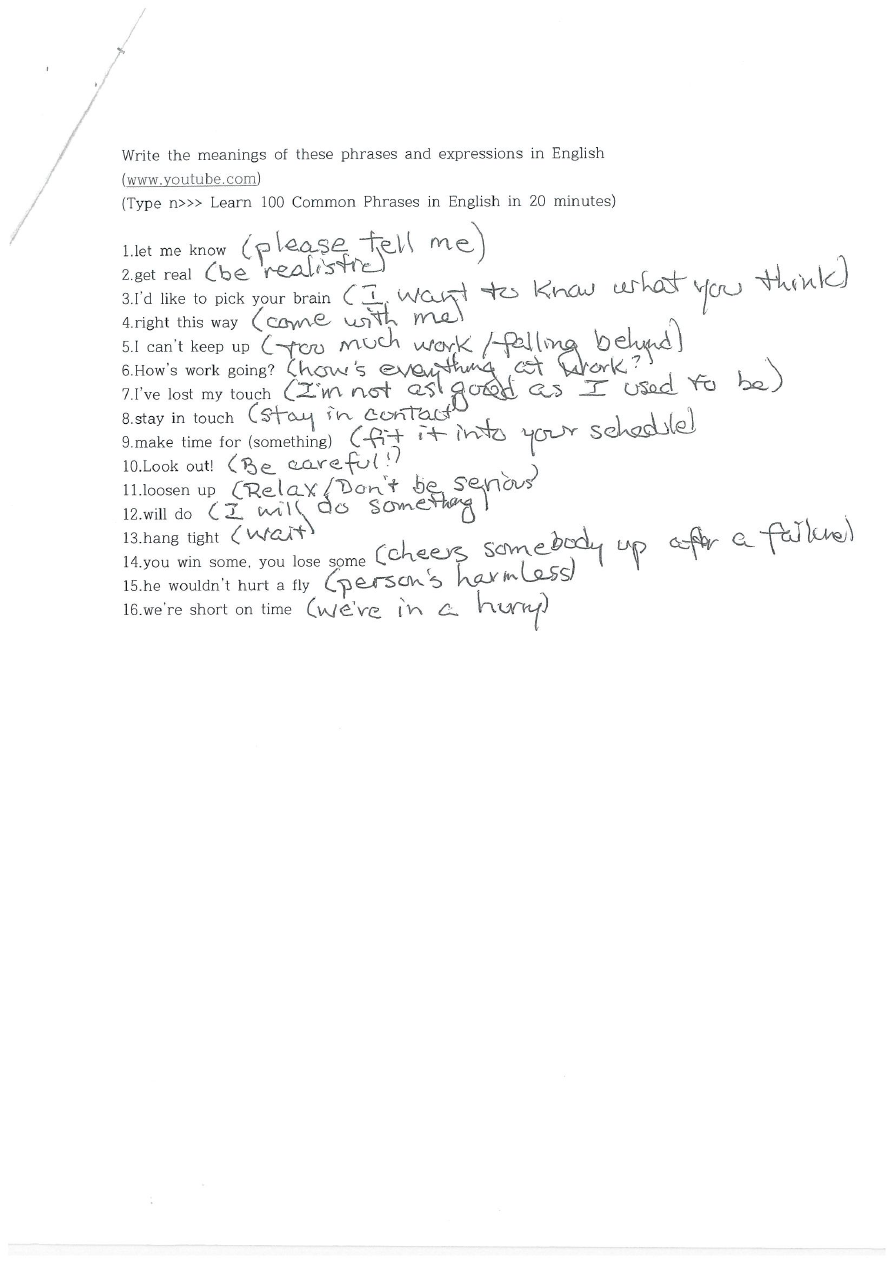 Write the meanings of these phrases and expressions in English
(www.youtube.com)
(Type n>>> Learn 100 Common Phrases in English in 20 minutes)
1.let me know (please tell me)
2.get real (be realistic)
3.I'd like to pick your brain (I want to know what you think)
4.right this way (come with me)
5.I can't keep up (too much work/falling behind)
6.How's work going? (how's everything at work?)
7.I've lost my touch (I'm not as good as I used to be)
8.stay in touch (stay in contact)
9.make time for (something) (fit it into your schedule)
10.Look out! (Be careful!)
11.loosen up (Relax/Don't be serious)
12.will do (I will do something)
13.hang tight (wait)
14.you win some, you lose some (cheers somebody up after a failure)
15.he wouldn't hurt a fly (person's harmless)
16.we're short on time (we're in a hurry)